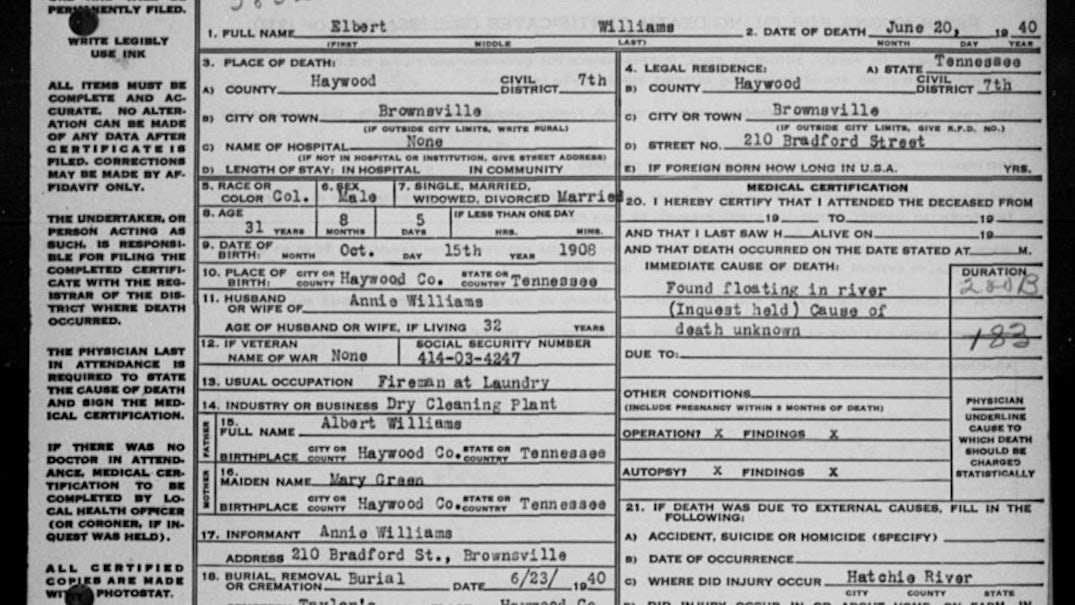 PERMANENTLY FILED.
WRITE LEGIBLY
USE INK
ALL ITEMS MUST BE
COMPLETE AND AC-
CURATE. NO ALTER-
ATION CAN BE MADE
OF ANY DATA AFTER
CERTIFICATE IS
FILED. CORRECTIONS
MAY BE MADE BY AF-
FIDAVIT ONLY.
THE UNDERTAKER, OR
PERSON ACTING AS
SUCH, IS RESPONSI-
BLE FOR FILING THE
COMPLETED CERTIFI-
CATE WITH THE REG-
ISTRAR OF THE DIS-
TRICT WHERE DEATH
OCCURRED.
THE PHYSICIAN LAST
IN ATTENDANCE IS
REQUIRED TO STATE
THE CAUSE OF DEATH
AND SIGN THE MED-
ICAL CERTIFICATION.
IF THERE WAS NO
DOCTOR IN ATTEND-
ANCE, MEDICAL CER-
TIFICATION TO BE
COMPLETED BY LO-
CAL HEALTH OFFICER
(OR CORONER, IF IN-
QUEST WAS HELD).
ALL CERTIFIED
COPIES ARE MADE
WITH PHOTOSTAT.
1. FULL NAME Elbert Williams 2. DATE OF DEATH June 20, 19 40
(FIRST) MIDDLE LAST) MONTH DAY YEAR
3. PLACE OF DEATH:
A) COUNTY Haywood CIVIL DISTRICT 7th
B) CITY OR TOWN Brownsville
(IF OUTSIDE CITY LIMITS, WRITE RURAL)
C) NAME OF HOSPITAL None
(IF NOT IN HOSPITAL OR INSTITUTION, GIVE STREET ADDRESS)
D) LENGTH OF STAY: IN HOSPITAL IN COMMUNITY
5. RACE OR COLOR Col. 6. SEX Male 7. SINGLE, MARRIED, WIDOWED, DIVORCED Married
8. AGE 31 YEARS 8 MONTHS 5 DAYS IF LESS THAN ONE DAY HRS. MINS.
9. DATE OF BIRTH: MONTH Oct. DAY 15th YEAR 1908
10. PLACE OF BIRTH: CITY OR COUNTY Haywood Co. STATE OR COUNTRY Tennessee
11. HUSBAND OR WIFE OF Annie Williams
AGE OF HUSBAND OR WIFE, IF LIVING 32 YEARS
12. IF VETERAN NAME OF WAR None SOCIAL SECURITY NUMBER 414-03-4247
13. USUAL OCCUPATION Fireman at Laundry
14. INDUSTRY OR BUSINESS Dry Cleaning Plant
FATHER
15. FULL NAME Albert Williams
BIRTHPLACE CITY OR COUNTY Haywood Co. STATE OR COUNTRY Tennessee
MOTHER
16. MAIDEN NAME Mary Green
BIRTHPLACE CITY OR COUNTY Haywood Co. STATE OR COUNTRY Tennessee
17. INFORMANT Annie Williams
ADDRESS 210 Bradford St., Brownsville
18. BURIAL, REMOVAL OR CREMATION Burial DATE 6/23/ 19 40
4. LEGAL RESIDENCE: A) STATE Tennessee
B) COUNTY Haywood CIVIL DISTRICT 7th
C) CITY OR TOWN Brownsville
(IF OUTSIDE CITY LIMITS, GIVE R.F.D. NO.)
D) STREET NO. 210 Bradford Street
E) IF FOREIGN BORN HOW LONG IN U.S.A. YRS.
MEDICAL CERTIFICATION
20. I HEREBY CERTIFY THAT I ATTENDED THE DECEASED FROM
19 TO 19
AND THAT I LAST SAW H ALIVE ON 19
AND THAT DEATH OCCURRED ON THE DATE STATED AT M.
IMMEDIATE CAUSE OF DEATH: DURATION
Found floating in river
(Inquest held) Cause of
death unknown 183
DUE TO:
OTHER CONDITIONS
(INCLUDE PREGNANCY WITHIN 3 MONTHS OF DEATH)
OPERATION? X FINDINGS X
AUTOPSY? X FINDINGS X
PHYSICIAN
UNDERLINE
CAUSE TO
WHICH DEATH
SHOULD BE
CHARGED
STATISTICALLY
21. IF DEATH WAS DUE TO EXTERNAL CAUSES, FILL IN THE
FOLLOWING:
A) ACCIDENT, SUICIDE OR HOMICIDE (SPECIFY)
B) DATE OF OCCURRENCE
C) WHERE DID INJURY OCCUR Hatchie River
CITY COUNTY STATE